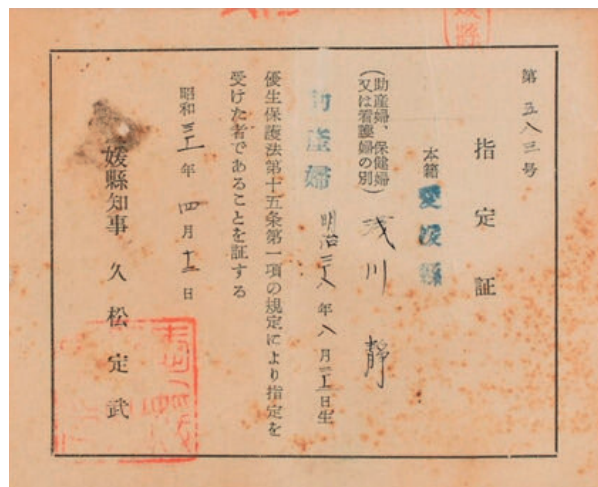 第五八三号
指定証
本籍 愛媛縣
(助産婦、保健婦
又は看護婦の別)
助産婦
浅川 靜
明治三八年八月 日生
優生保護法第十五条第一項の規定により指定を
受けた者であることを証する
昭和 年四月 日
媛縣知事 久松定武